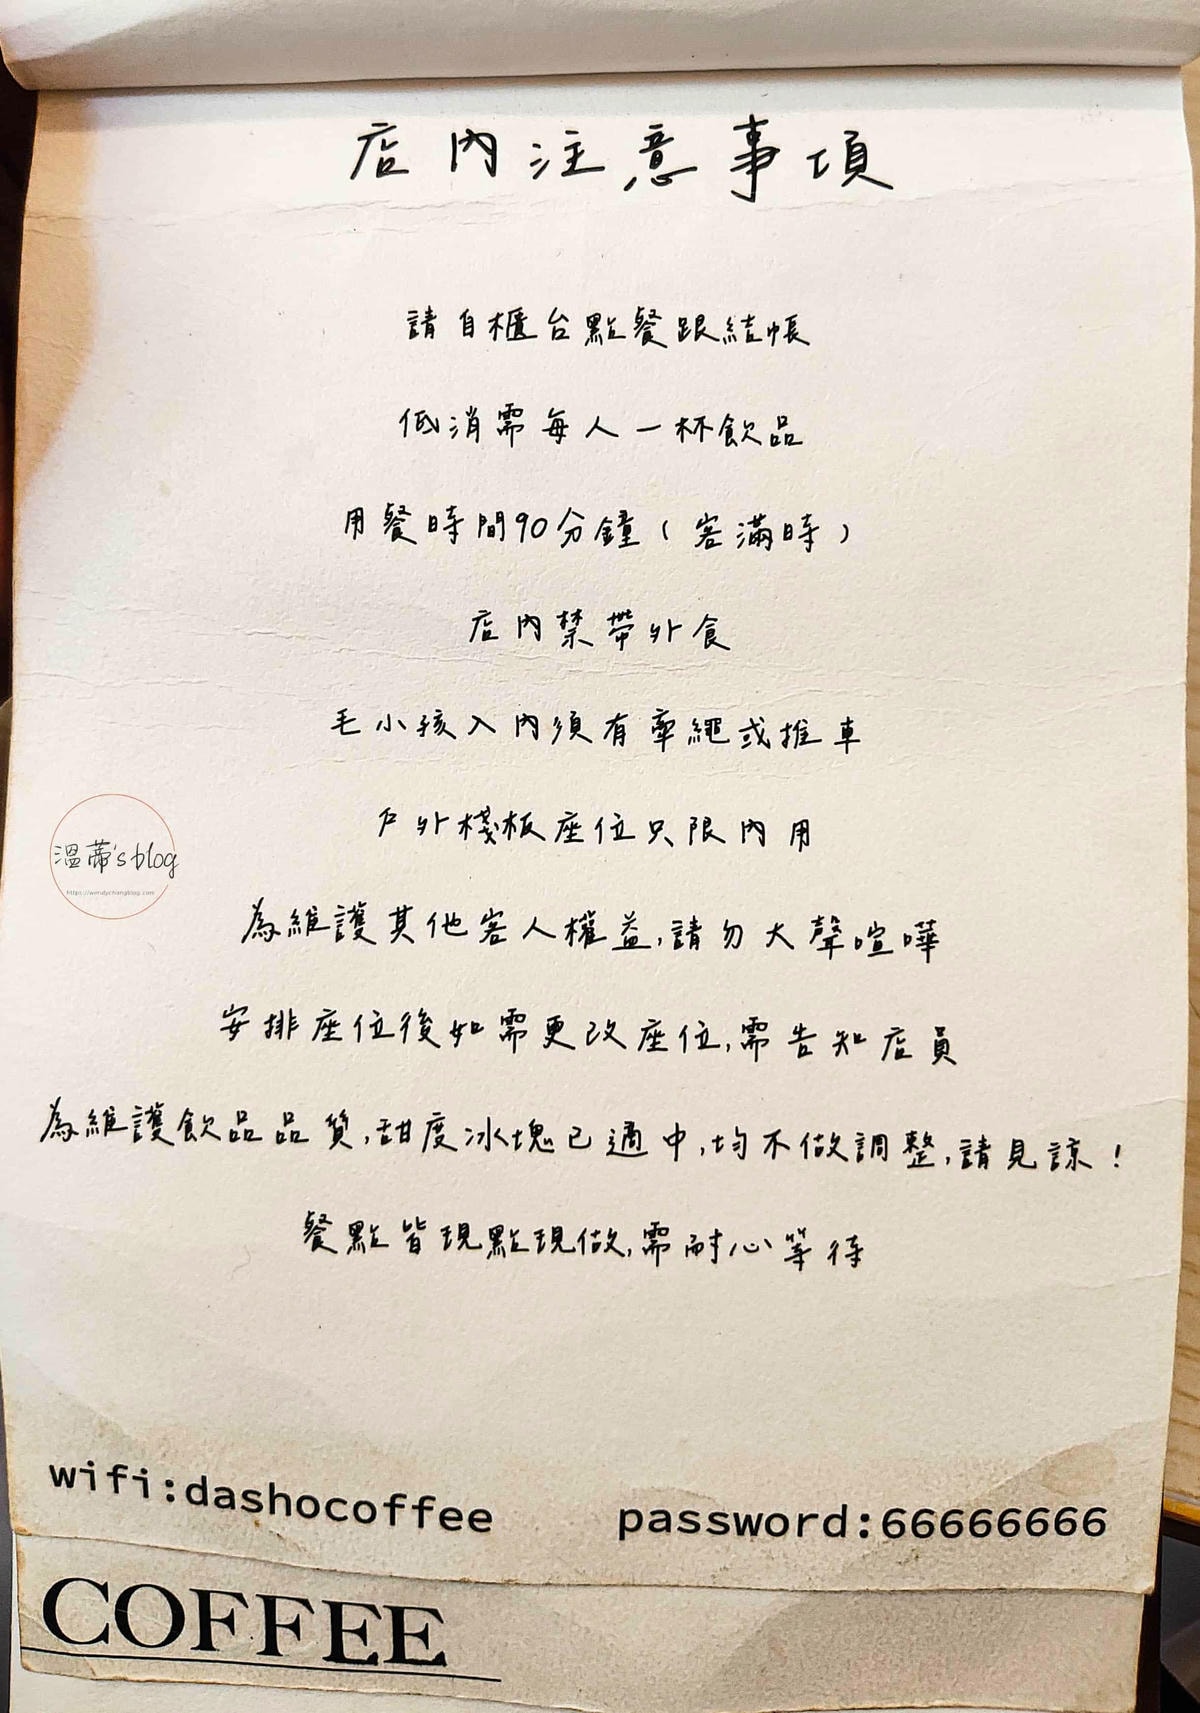 店內注意事項
請自櫃台點餐跟結帳
低消需每人一杯飲品
用餐時間90分鐘（客滿時）
店內禁帶外食
毛小孩入內須有牽繩或推車
戶外棧板座位只限內用
溫蒂's blog
https://wendychangblog.com
為維護其他客人權益,請勿大聲喧嘩
安排座位後如需更改座位,需告知店員
為維護飲品品質,甜度冰塊已適中,均不做調整,請見諒!
餐點皆現點現做,需耐心等待
wifi:dashocoffee password:66666666
COFFEE